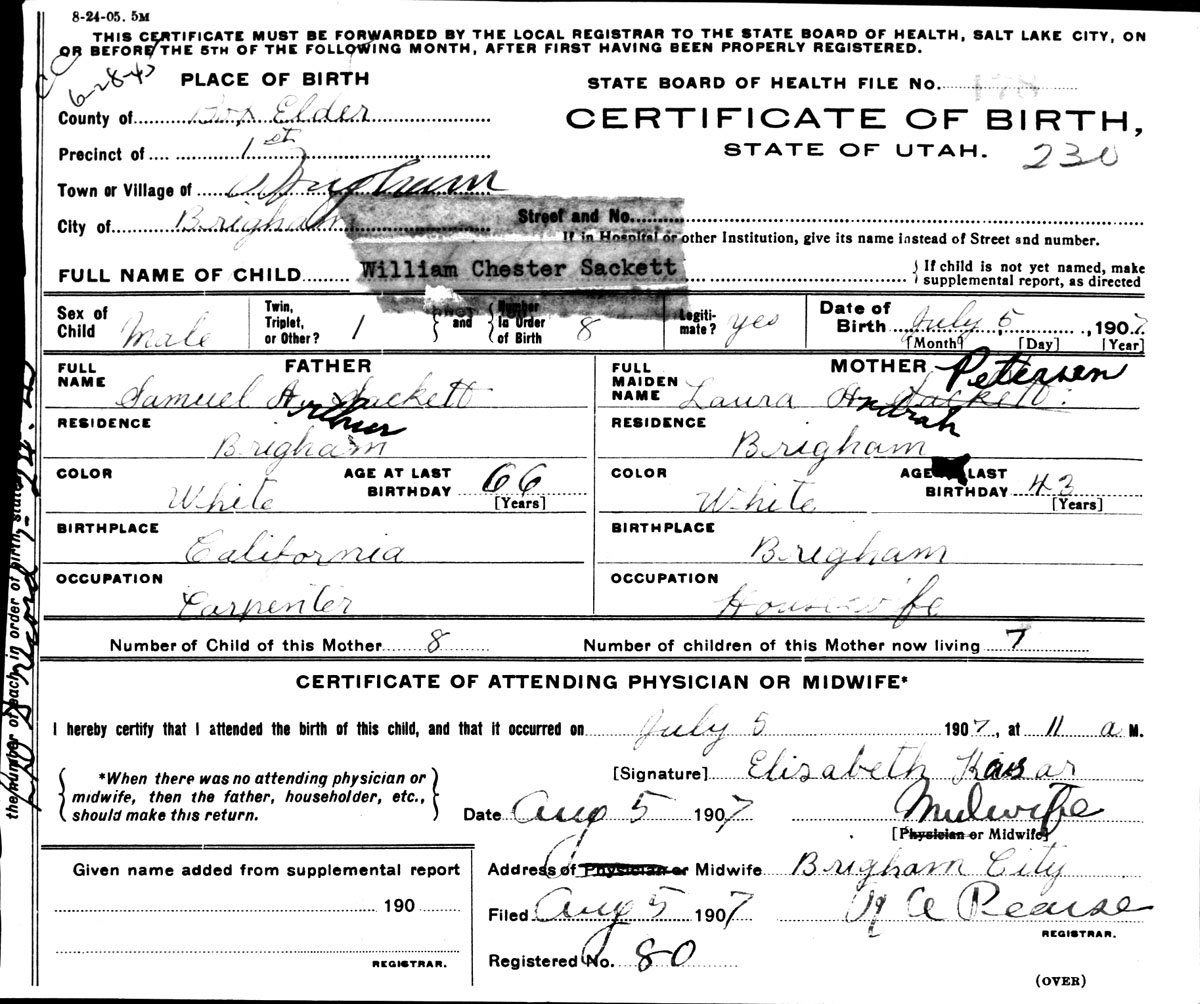 8-24-05. 5M
THIS CERTIFICATE MUST BE FORWARDED BY THE LOCAL REGISTRAR TO THE STATE BOARD OF HEALTH, SALT LAKE CITY, ON
OR BEFORE THE 5TH OF THE FOLLOWING MONTH, AFTER FIRST HAVING BEEN PROPERLY REGISTERED.
6-28-43
PLACE OF BIRTH
STATE BOARD OF HEALTH FILE No. 178
County of Box Elder
CERTIFICATE OF BIRTH,
Precinct of 1st
STATE OF UTAH. 230
Town or Village of Brigham
City of Brigham Street and No.
If in Hospital or other Institution, give its name instead of Street and number.
FULL NAME OF CHILD William Chester Sackett } If child is not yet named, make
supplemental report, as directed
Sex of Child Male Twin, Triplet, or Other? 1 } and { Number In Order of Birth 8 Legiti-mate? yes Date of Birth July 5, 1907
[Month] [Day] [Year]
FATHER MOTHER
FULL NAME Samuel Arthur Sackett FULL MAIDEN NAME Laura Sackett Petersen
RESIDENCE Brigham RESIDENCE Brigham
COLOR White AGE AT LAST BIRTHDAY 66 [Years] COLOR White AGE LAST BIRTHDAY 43 [Years]
BIRTHPLACE California BIRTHPLACE Brigham
OCCUPATION Carpenter OCCUPATION Housewife
Number of Child of this Mother 8 Number of children of this Mother now living 7
CERTIFICATE OF ATTENDING PHYSICIAN OR MIDWIFE*
I hereby certify that I attended the birth of this child, and that it occurred on July 5 1907, at 11 a M.
*When there was no attending physician or
midwife, then the father, householder, etc.,
should make this return.
[Signature] Elisabeth
Date Aug 5 1907 Midwife
[Physician or Midwife]
Address of Physician or Midwife Brigham City
Filed Aug 5 1907 Pearse
REGISTRAR.
Registered No. 80
Given name added from supplemental report
190
REGISTRAR.
(OVER)
the number of each, in order of birth, stated